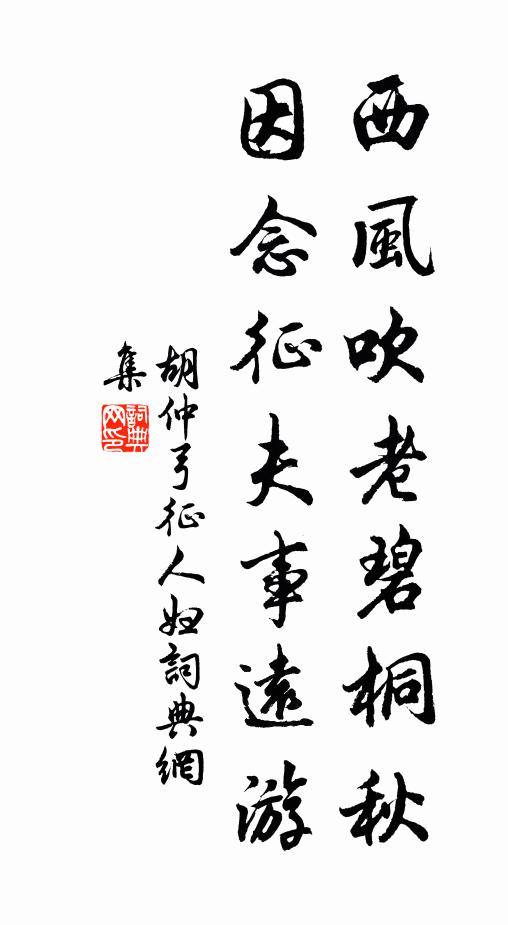 西風吹老碧桐秋
因念征夫事遠游
胡仲弓征人妞詞典網
集
詞典网印